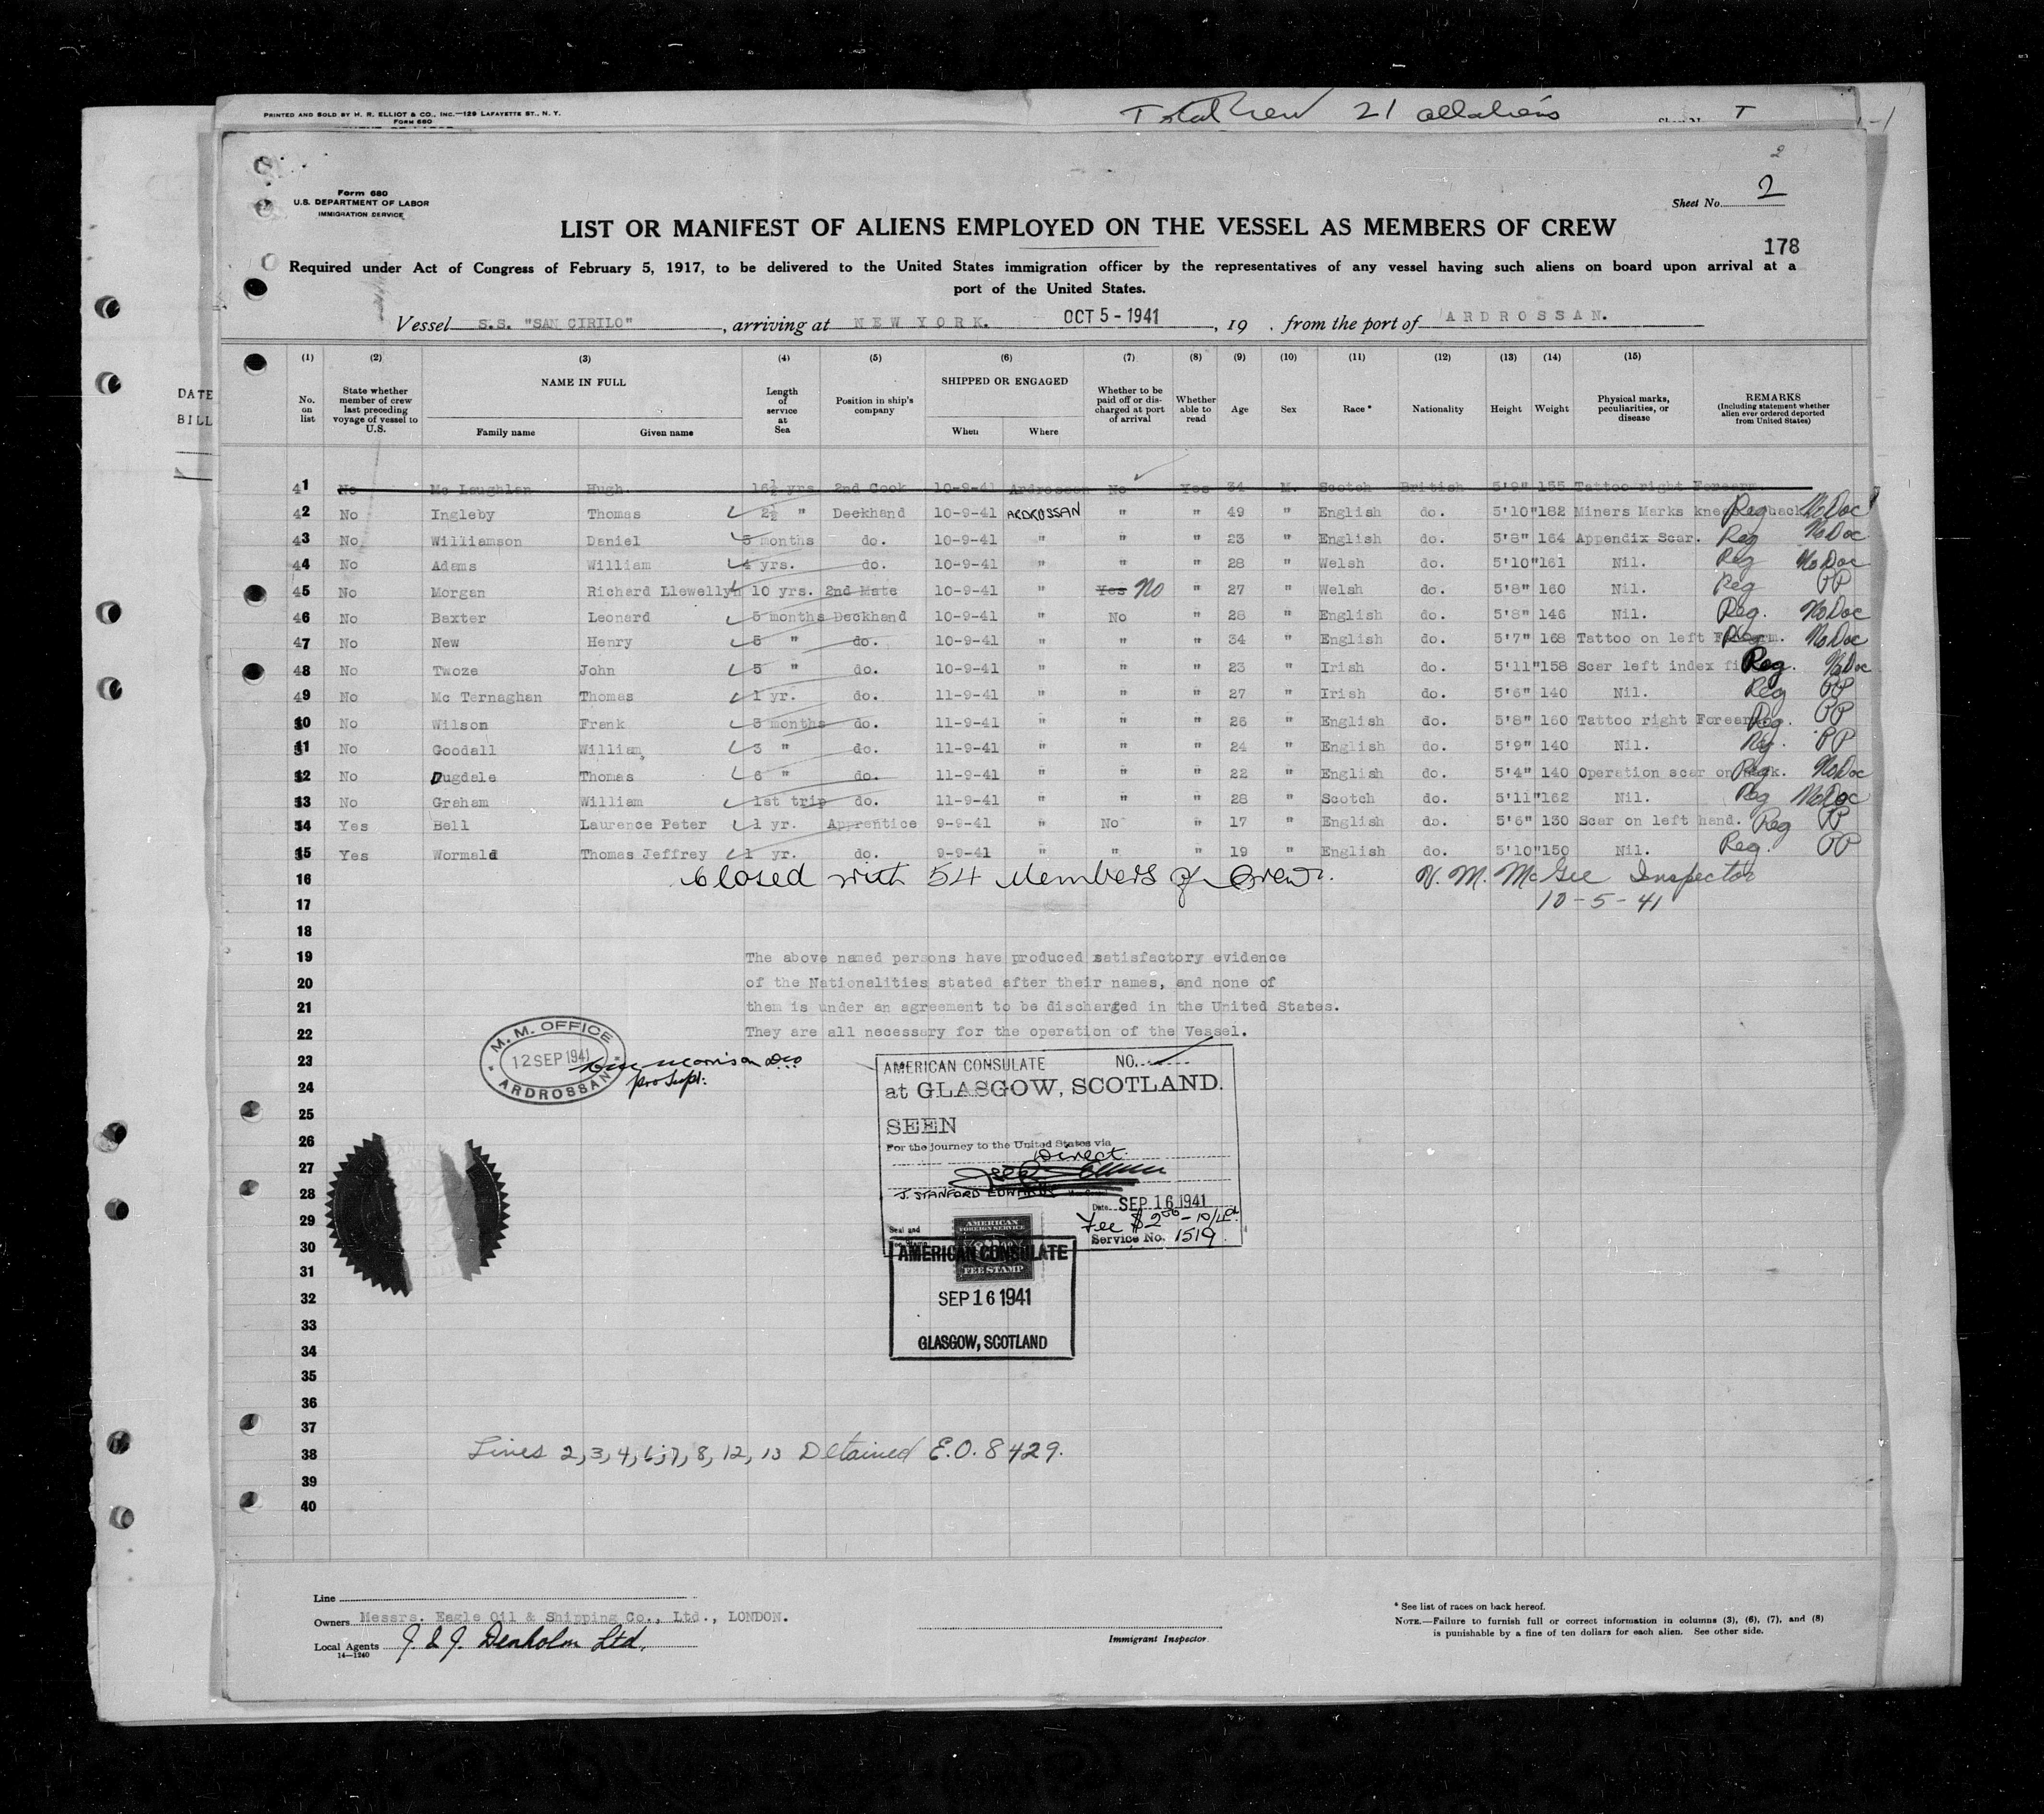 PRINTED AND SOLD BY H. R. ELLIOT & CO., INC.—129 LAFAYETTE ST., N. Y.
FORM 680
Total Crew 21 all aliens
DATE
BILL
2
Form 680
U.S. DEPARTMENT OF LABOR
IMMIGRATION SERVICE
Sheet No. 2
LIST OR MANIFEST OF ALIENS EMPLOYED ON THE VESSEL AS MEMBERS OF CREW
178
Required under Act of Congress of February 5, 1917, to be delivered to the United States immigration officer by the representatives of any vessel having such aliens on board upon arrival at a
port of the United States.
Vessel S.S. "SAN CIRILO", arriving at NEW YORK. OCT 5 - 1941, 19 . from the port of ARDROSSAN.
(1) (2) (3) (4) (5) (6) (7) (8) (9) (10) (11) (12) (13) (14) (15)
No. on list
State whether member of crew last preceding voyage of vessel to U.S.
NAME IN FULL
Family name
Given name
Length of service at Sea
Position in ship's company
SHIPPED OR ENGAGED
When
Where
Whether to be paid off or discharged at port of arrival
Whether able to read
Age
Sex
Race *
Nationality
Height
Weight
Physical marks, peculiarities, or disease
REMARKS
(Including statement whether alien ever ordered deported from United States)
41 No Mc Laughlan Hugh 16½ yrs. 2nd Cook 10-9-41 Ardrossan No Yes 34 M. Scotch British 5'9" 155 Tattoo right Forearm.
42 No Ingleby Thomas 2½ " Deckhand 10-9-41 ARDROSSAN " " 49 " English do. 5'10" 182 Miners Marks knee back Reg No Doc
43 No Williamson Daniel 5 months do. 10-9-41 " " " 23 " English do. 5'8" 164 Appendix Scar. Reg No Doc
44 No Adams William 4 yrs. do. 10-9-41 " " " 28 " Welsh do. 5'10" 161 Nil. Reg No Doc
45 No Morgan Richard Llewellyn 10 yrs. 2nd Mate 10-9-41 " Yes No " 27 " Welsh do. 5'8" 160 Nil. Reg PP
46 No Baxter Leonard 5 months Deckhand 10-9-41 " No " 28 " English do. 5'8" 146 Nil. Reg. No Doc
47 No New Henry 5 " do. 10-9-41 " " " 34 " English do. 5'7" 168 Tattoo on left Forearm. Reg No Doc
48 No Twoze John 5 " do. 10-9-41 " " " 23 " Irish do. 5'11" 158 Scar left index Reg. No Doc
49 No Mc Ternaghan Thomas 1 yr. do. 11-9-41 " " " 27 " Irish do. 5'6" 140 Nil. Reg PP
50 No Wilson Frank 5 months do. 11-9-41 " " " 26 " English do. 5'8" 160 Tattoo right Forearm. Reg. PP
51 No Goodall William 3 " do. 11-9-41 " " " 24 " English do. 5'9" 140 Nil. Reg. PP
52 No Dugdale Thomas 6 " do. 11-9-41 " " " 22 " English do. 5'4" 140 Operation scar on Reg No Doc
53 No Graham William 1st trip do. 11-9-41 " " " 28 " Scotch do. 5'11" 162 Nil. Reg No Doc
54 Yes Bell Laurence Peter 1 yr. Apprentice 9-9-41 " No " 17 " English do. 5'6" 130 Scar on left hand. Reg PP
15 Yes Wormald Thomas Jeffrey 1 yr. do. 9-9-41 " " " 19 " English do. 5'10" 150 Nil. Reg. PP
16 Closed with 54 Members of Crew. V. M. McGee Inspector
17 10-5-41
18
19 The above named persons have produced satisfactory evidence
20 of the Nationalities stated after their names, and none of
21 them is under an agreement to be discharged in the United States.
22 They are all necessary for the operation of the Vessel.
23
24
25
26
27
28
29
30
31
32
33
34
35
36
37
38 Lines 2, 3, 4, 6, 7, 8, 12, 13 Detained E.O. 8429.
39
40
M. M. OFFICE
12 SEP 1941
ARDROSSAN
Morrison
pro Supt.
AMERICAN CONSULATE NO.
at GLASGOW, SCOTLAND.
SEEN
For the journey to the United States via
Direct.
J. STANFORD EDWARDS
Date SEP 16 1941
Fee $2.00 - 10/
Seal and
Service No. 1519.
AMERICAN
FOREIGN SERVICE
FEE STAMP
AMERICAN CONSULATE
SEP 16 1941
GLASGOW, SCOTLAND
Line
Owners Messrs. Eagle Oil & Shipping Co., Ltd., LONDON.
Local Agents J. & J. Denholm Ltd.
14—1240
Immigrant Inspector
* See list of races on back hereof.
NOTE.—Failure to furnish full or correct information in columns (3), (6), (7), and (8)
is punishable by a fine of ten dollars for each alien. See other side.